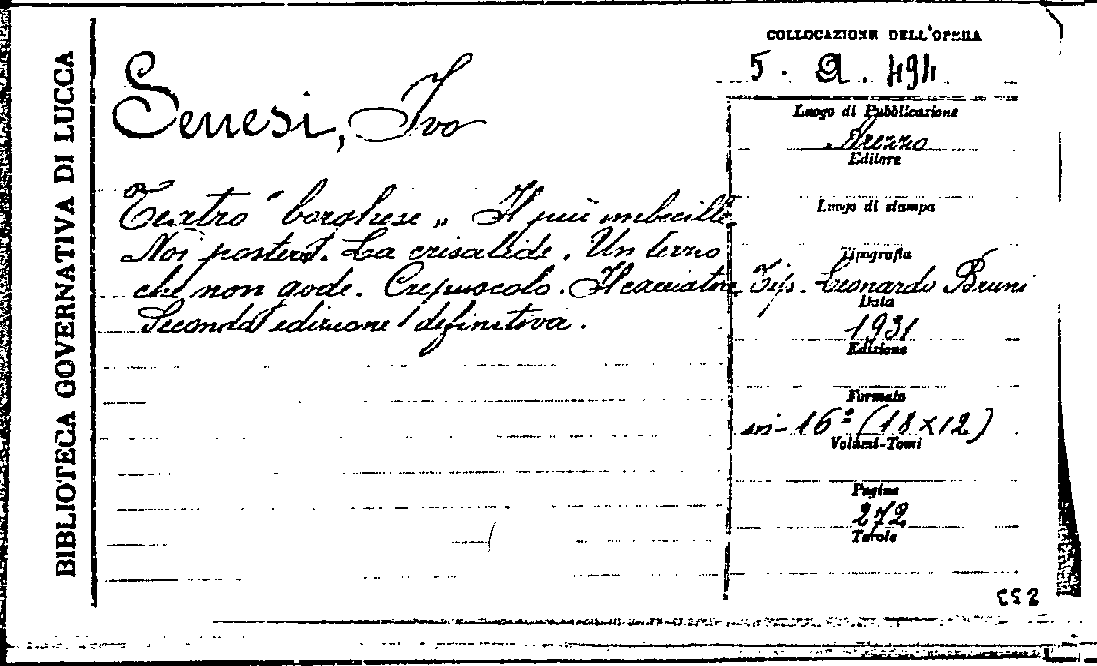 BIBLIOTECA GOVERNATIVA DI LUCCA
COLLOCAZIONE DELL'OPERA
5. a. 494
Senesi, Ivo
Teatro "borghese„ Il più imbecille.
Noi posteri. La crisalide. Un terzo
che non gode. Crepuscolo. Il cacciatore
Seconda edizione definitiva.
Luogo di Pubblicazione
Arezzo
Editore
Luogo di stampa
Tipografia
Tip. Leonardo Bruni
Data
1931
Edizione
Formato
in-16° (18x12)
Volumi-Tomi
Pagine
272
Tavole